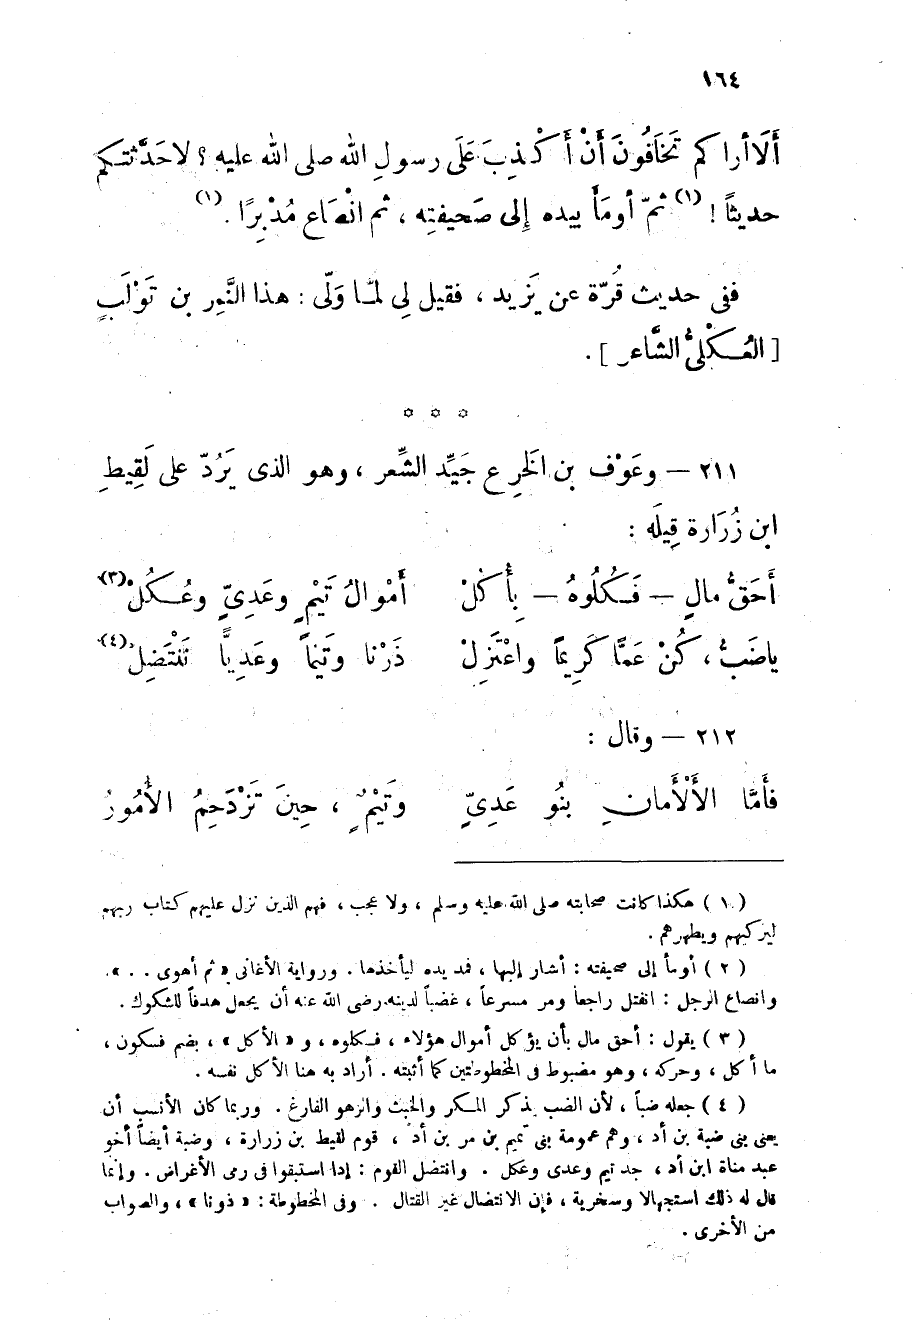 ١٦٤
أَلَا أراكم تَخَافُونَ أَنْ أَكْذِبَ عَلَى رسولِ الله صلى الله عليه ؟ لا حَدَّثتكم
حديثاً ! (١) ثمّ أومَأَ بيده إلى صَحيفتِه ، ثم انْصَاع مُدْبِرًا . (١)
ففى حديث قُرّة عن يَزيد ، فقيل لِي لمَّا وَلّى : هذا النَّمِر بن تَوْلَبٍ
[ العُكْلِىُّ الشَّاعر ] .
* * *
٢١١ — وعَوْف بن الخَرِع جَيِّد الشِّعر ، وهو الذى يَرُدّ على لَقِيطِ
ابن زُرَارة قِيلَه :
أَحَقُّ مالٍ — فَكُلُوهُ — بِأُكُلْ أَمْوالُ تَيْمٍ وعَدِيٍّ وعُكُلْ (٣)
ياضَبُّ ، كُنْ عَمًّا كَرِيمًا واعْتَزِلْ ذَرْنا وتَيْمًا وعَديًّا نَنْتَضِلْ (٤)
٢١٢ — وقال :
فأَمَّا الأَلْأَمانِ بنُو عَدِيٍّ وتَيْمٍ ، حِينَ تَزْدَحِمُ الأُمُورُ
( ١ ) هكذا كانت صحابته صلى الله عليه وسلم ، ولا عجب ، فهم الذين نزل عليهم كتاب ربهم
ليزكيهم ويطهرهم .
( ٢ ) أومأ إلى صحيفته : أشار إليها ، فمد يده ليأخذها . ورواية الأغانى « ثم أهوى . . » .
وانصاع الرجل : انفتل راجعاً ومر مسرعاً ، غضباً لدينه رضى الله عنه أن يجعل هدفاً للشكوك .
( ٣ ) يقول : أحق مال بأن يؤكل أموال هؤلاء ، فكلوه ، و « الأكل » ، بضم فسكون ،
ما أكل ، وحركه ، وهو مضبوط فى المخطوطتين كما أثبته . أراد به هنا الأكل نفسه .
( ٤ ) جعله ضباً ، لأن الضب يذكر المكر والخبث والزهو الفارغ . وربما كان الأنسب أن
يعنى بنى ضبة بن أد ، وهم عمومة بنى تميم بن مر بن أد ، قوم لقيط بن زرارة ، وضبة أيضاً أخو
عبد مناة ابن أد ، جد تيم وعدى وعكل . وانتضل القوم : إذا استبقوا فى رمى الأغراض . وإنما
قال له ذلك استجهالا وسخرية ، فإن الانتضال غير القتال . وفى المخطوطة : « ذونا » ، والصواب
من الأخرى .